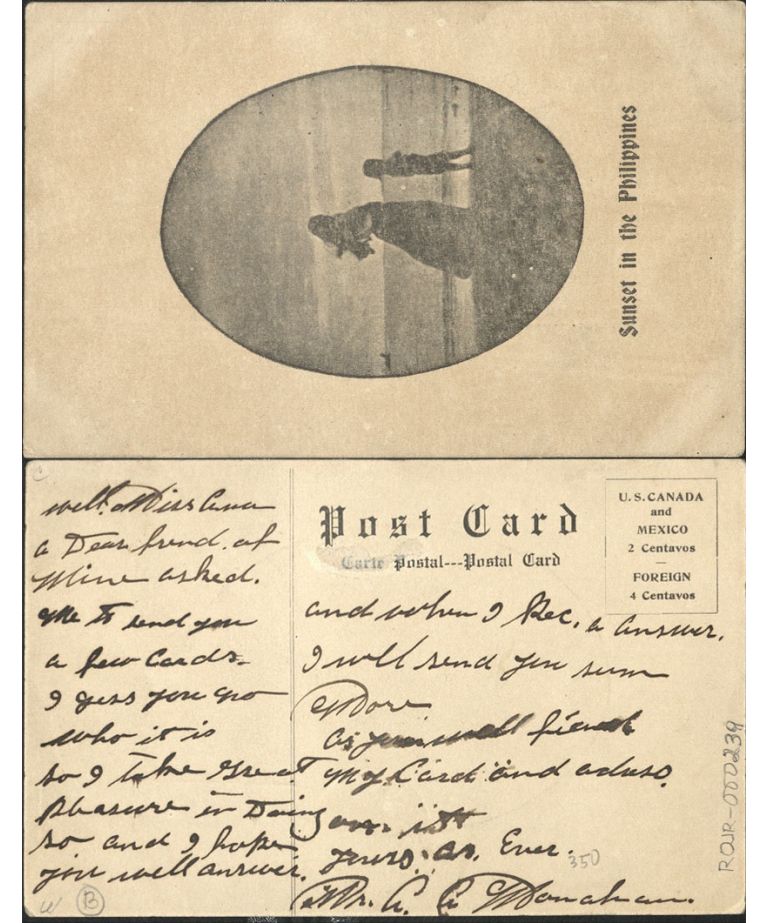 Sunset in the Philippines
C
well. Miss Anna
a Dear frend. of
Mine asked.
Me to send you
a few Cards.
I gess you no
who it is
so I take Great
Pleasure in Doing
so and I hope
you well answer.
W B
Post Card
Carte Postal---Postal Card
U.S. CANADA
and
MEXICO
2 Centavos
FOREIGN
4 Centavos
and when I Rec. a answer.
I will send you sum
More
as you well
my Card and adress.
on it
yours. as. Ever.
350
Mr. A. A Monahan.
ROJR-000239